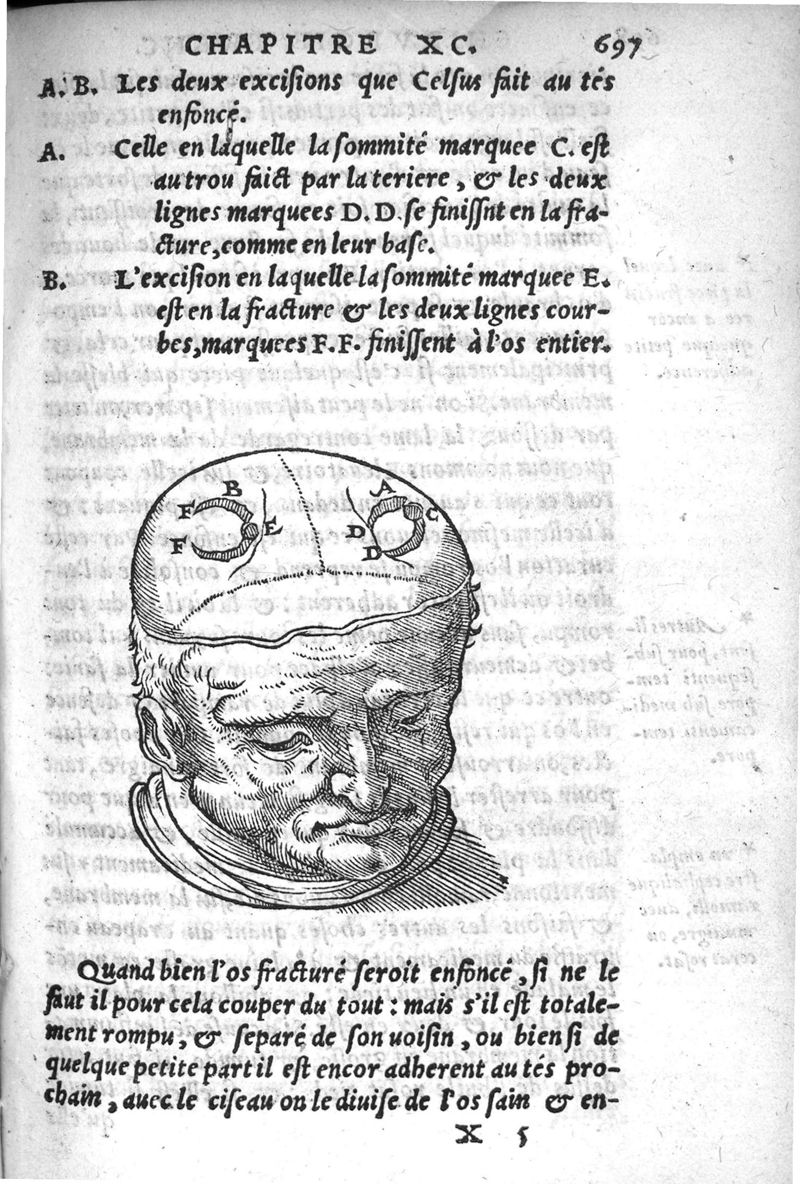 CHAPITRE XC. 697
A. B. Les deux excisions que Celsus fait au tés
enfoncé.
A. Celle en laquelle la sommité marquee C. est
au trou faict par la teriere, & les deux
lignes marquees D. D. se finissnt en la fra-
cture, comme en leur base.
B. L'excision en laquelle la sommité marquee E.
est en la fracture & les deux lignes cour-
bes, marquees F. F. finissent à l'os entier.
B A
F C
E D
F D
Quand bien l'os fracturé seroit enfoncé, si ne le
faut il pour cela couper du tout : mais s'il est totale-
ment rompu, & separé de son uoisin, ou bien si de
quelque petite part il est encor adherent au tés pro-
chain, auec le ciseau on le diuise de l'os sain & en-
X 5